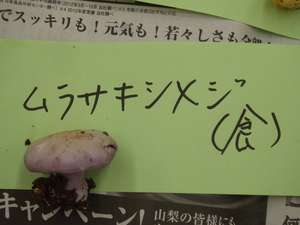 でスッキリも!元気も!若々しさも全部
ムラサキシメジ
(食)
キャンペーン!
山梨の皆様にも